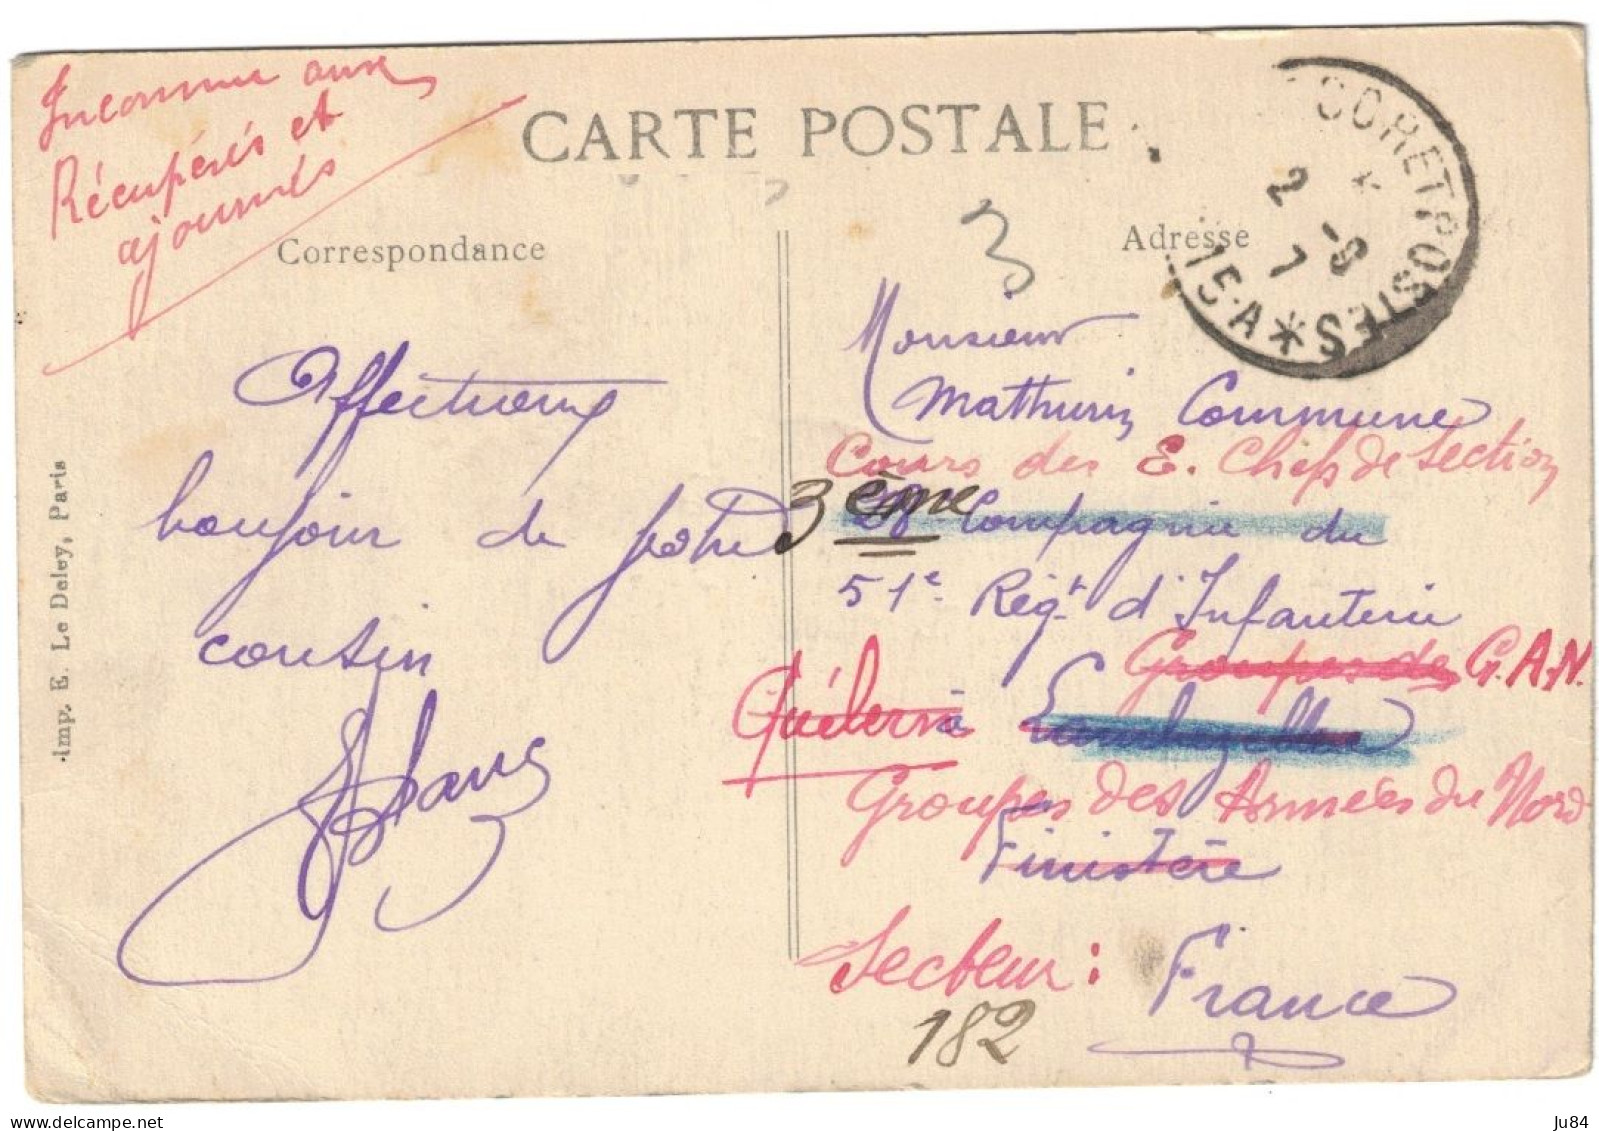 Inconnu aux
Récupérés et
ajournés
CARTE POSTALE
Correspondance
Adresse
3
TRESOR ET POSTES
2 - 9
1
15·A
Affectueux
bonjour de votre
cousin
Monsieur
Mathurin Commune
Cours des E. Chefs de Section
3ème
28e Compagnie du
51e Régt d'Infanterie
Groupes des G.A.N.
Quélern à
Groupes des Armées du Nord
Finistère
Secteur :
182
France
Imp. E. Le Deley, Paris
delcampe.net
Ju84